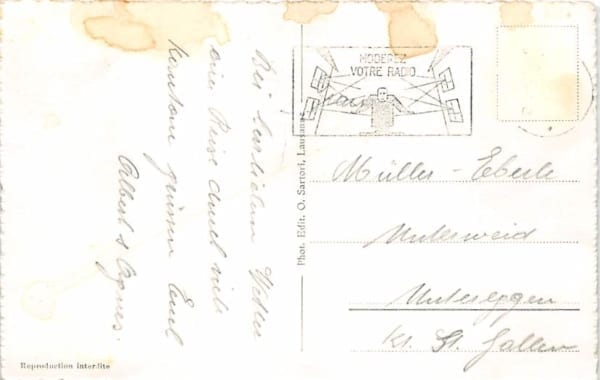 Bei herrlichem Wetter
eine Reise durch viele
Kantone grüssen Euch
Albert & Agnes.
MODEREZ
VOTRE RADIO
Phot. Edit. O. Sartori, Lausanne
Müller - Eberle
Unterweid
Untereggen
Kt. St. Gallen
Reproduction interdite